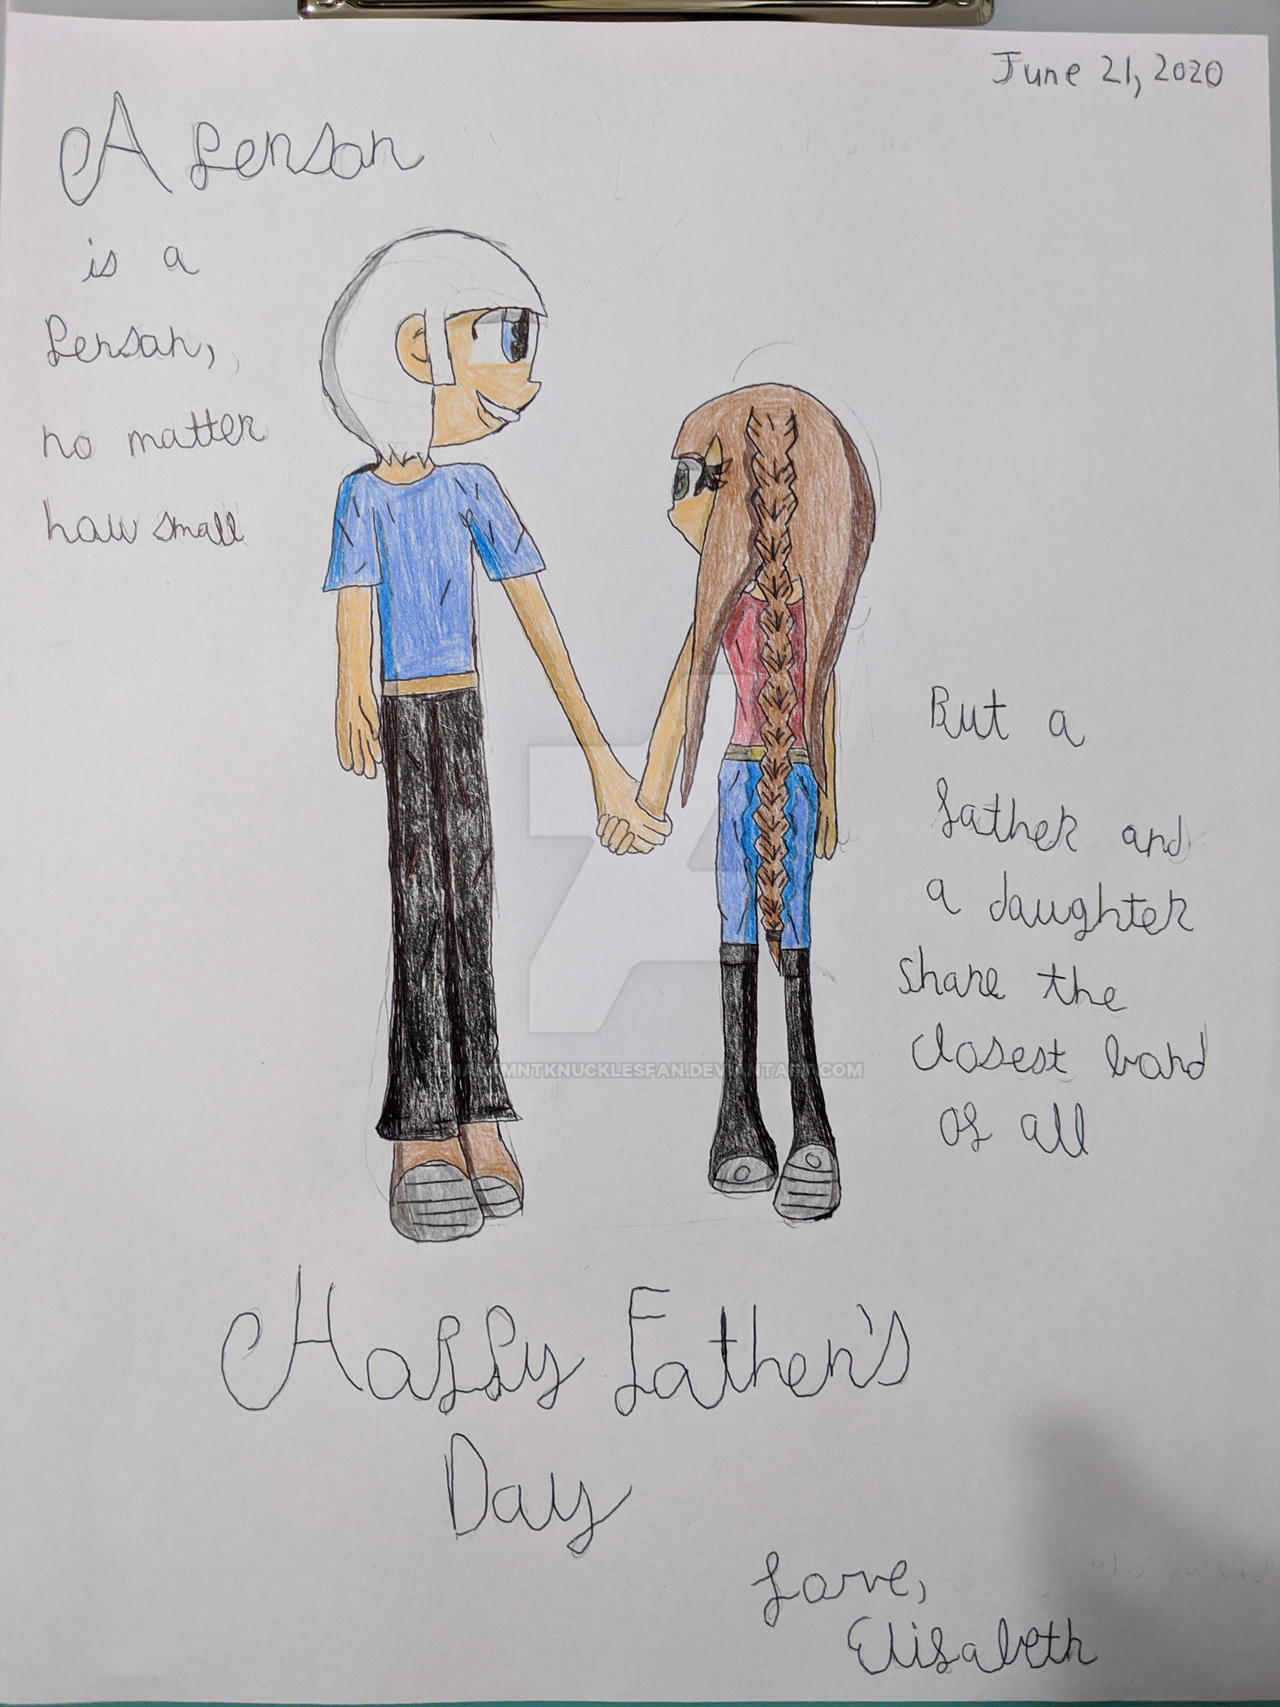 June 21, 2020
A Person
is a
Person,
no matter
how small
But a
father and
a daughter
share the
closest bond
of all
NARTMNTKNUCKLESFAN.DEVIANTART.COM
Happy Father's
Day
Love,
Elisabeth